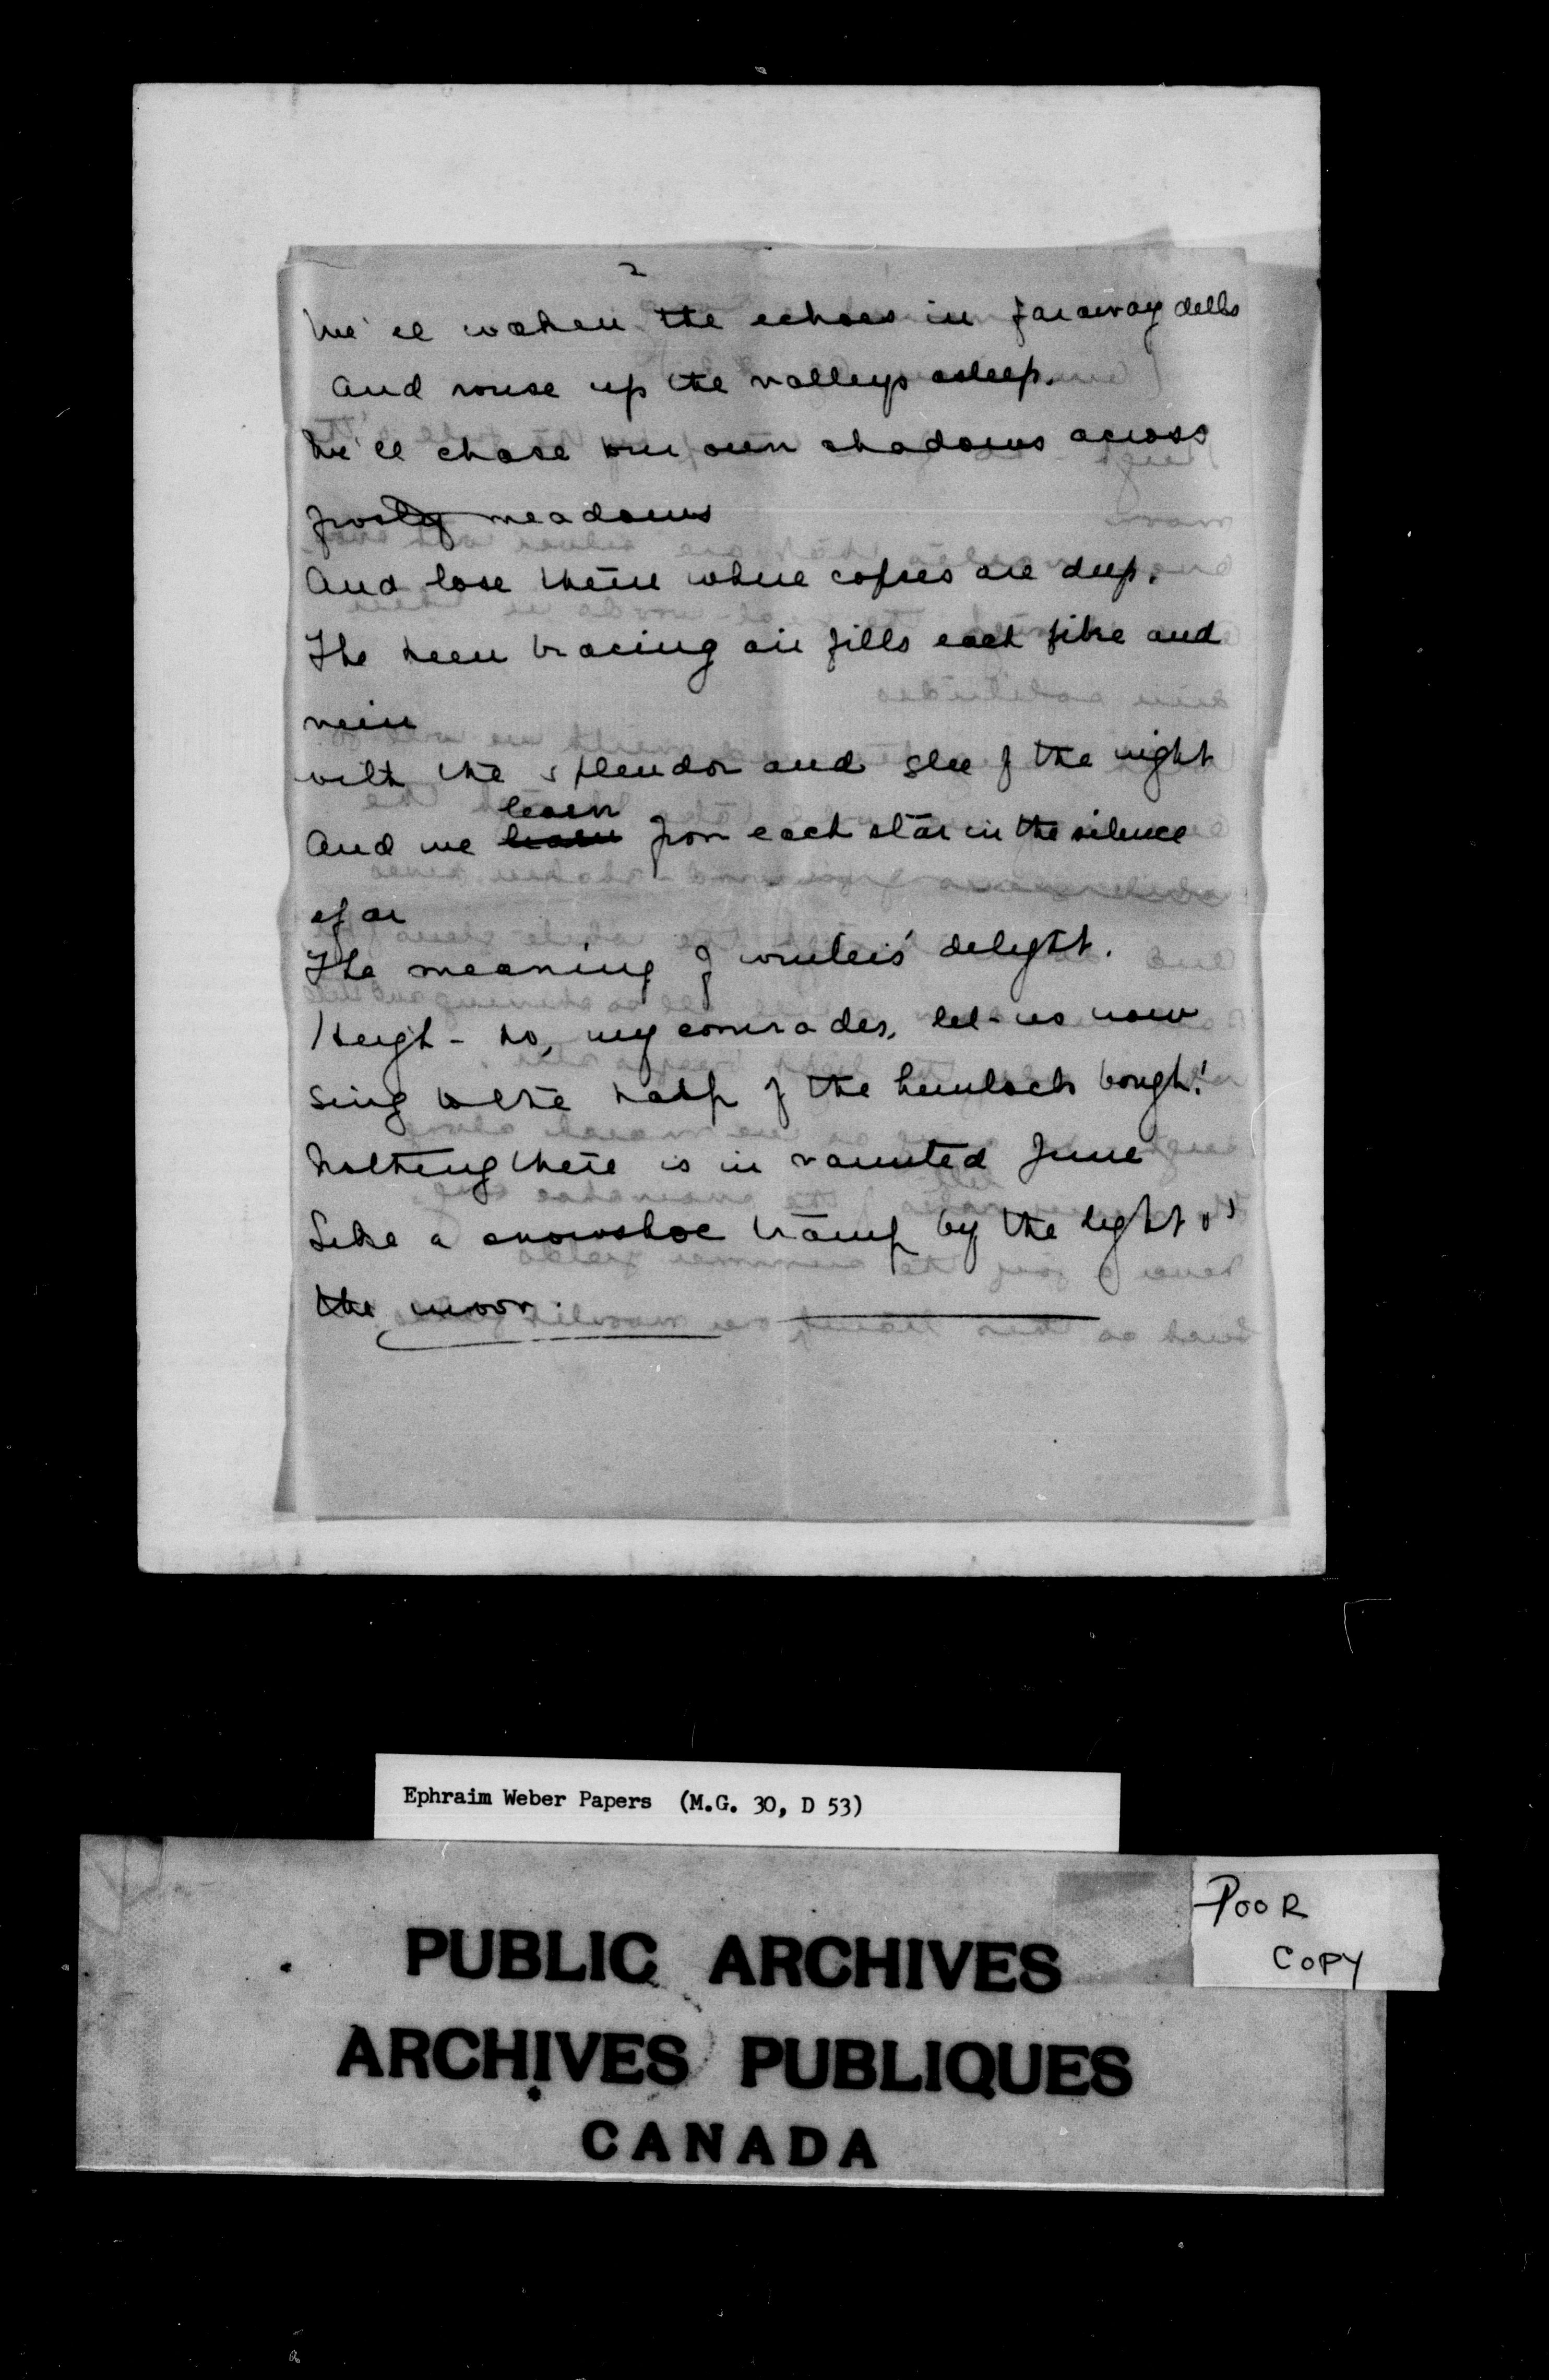 2
We'll waken the echoes in faraway dells
And rouse up the valleys asleep.
We'll chase our own shadows across
frosty meadows
And lose them where copses are deep.
The keen bracing air fills each fibre and
vein
With the splendor and glee of the night
learn
And we from each star in the silence
afar
The meaning of winter's delight.
Heigh-ho, my comrades, let us now
Sing to the harp of the hemlock bough!
Nothing there is in vaunted June
Like a snowshoe tramp by the light o'
the moon.
Ephraim Weber Papers (M.G. 30, D 53)
POOR
COPY
PUBLIC ARCHIVES
ARCHIVES PUBLIQUES
CANADA